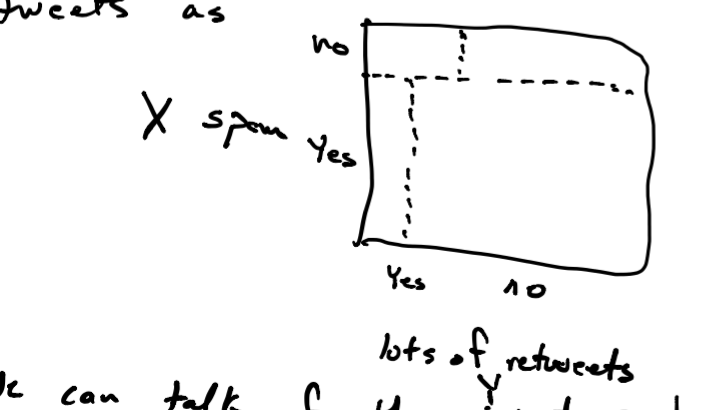 tweets as
no
X spam Yes
Yes no
lots of retweets
Y
can talk